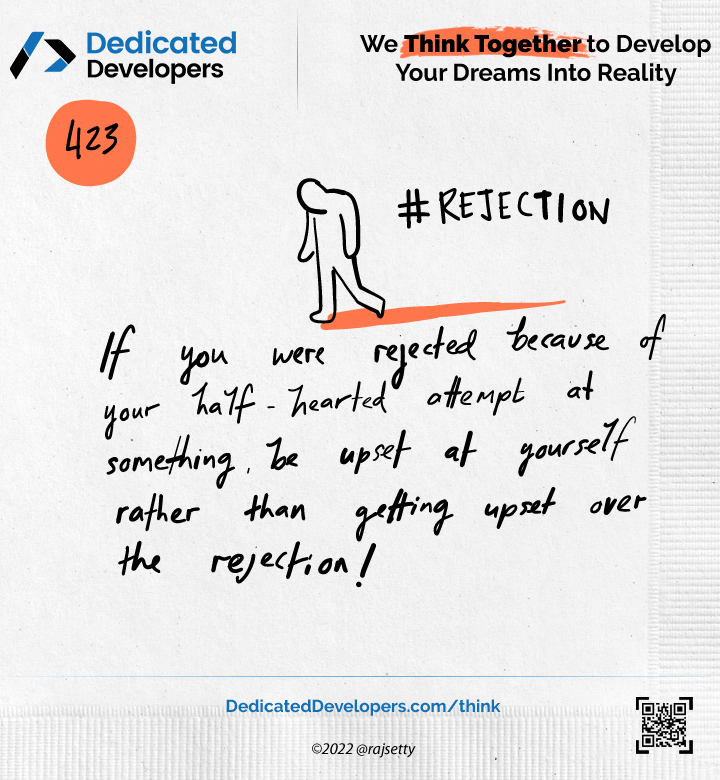 Dedicated
Developers
We Think Together to Develop
Your Dreams Into Reality
423
#REJECTION
If you were rejected because of
your half-hearted attempt at
something, be upset at yourself
rather than getting upset over
the rejection!
DedicatedDevelopers.com/think
©2022 @rajsetty